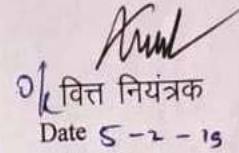 o/c वित्त नियंत्रक
Date 5-2-19